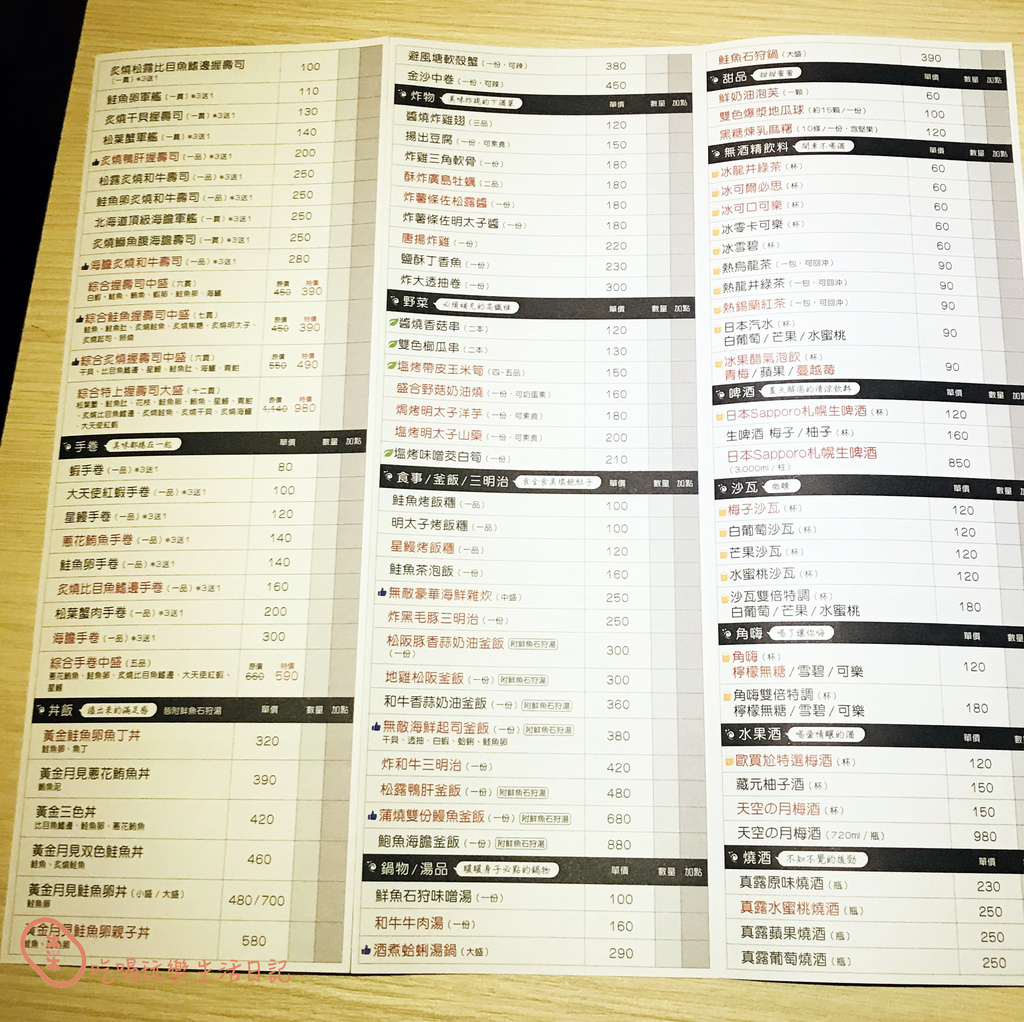 炙燒松露比目魚鰭邊握壽司 100
(一貫)*3送1
鮭魚卵軍艦(一貫)*3送1 110
炙燒干貝握壽司(一貫)*3送1 130
松葉蟹軍艦(一貫)*3送1 140
炙燒鴨肝握壽司(一品)*3送1 200
松露炙燒和牛壽司(一品)*3送1 250
鮭魚卵炙燒和牛壽司(一品)*3送1 250
北海道頂級海膽軍艦(一貫)*3送1 250
炙燒鰤魚腹海膽壽司(一貫)*3送1 250
海膽炙燒和牛壽司(一品)*3送1 280
綜合握壽司中盛(六貫) 原價 450 特價 390
白蝦、鮭魚、鮪魚、蝦卵、鮭魚卵、海鱺
綜合鮭魚握壽司中盛(七貫) 原價 450 特價 390
鮭魚、鮭魚肚、炙燒鮭魚、炙燒焦糖、炙燒明太子、
炙燒起司、照燒
綜合炙燒握壽司中盛(六貫) 原價 550 特價 490
干貝、比目魚鰭邊、星鰻、鮭魚肚、海鱺、青甜
綜合特上握壽司大盛(十二貫) 原價 1,140 特價 980
松葉蟹、鮭魚肚、花枝、鮭魚卵、鮪魚、星鰻、青甜
、炙燒比目魚鰭邊、炙燒鮭魚、炙燒干貝、炙燒海鱺
、大天使紅蝦
手卷 美味都捲在一起 單價 數量 加點
蝦手卷(一品)*3送1 80
大天使紅蝦手卷(一品)*3送1 100
星鰻手卷(一品)*3送1 120
蔥花鮪魚手卷(一品)*3送1 140
鮭魚卵手卷(一品)*3送1 140
炙燒比目魚鰭邊手卷(一品)*3送1 160
松葉蟹肉手卷(一品)*3送1 200
海膽手卷(一品)*3送1 300
綜合手卷中盛(五品) 原價 660 特價 590
蔥花鮪魚、鮭魚卵、炙燒比目魚鰭邊、大天使紅蝦、
星鰻
丼飯 溢出來的滿足感 皆附鮮魚石狩湯 單價 數量 加點
黃金鮭魚卵魚丁丼 320
鮭魚卵、魚丁
黃金月見蔥花鮪魚丼 390
鮪魚泥
黃金三色丼 420
比目魚鰭邊、鮭魚卵、蔥花鮪魚
黃金月見双色鮭魚丼 460
鮭魚、炙燒鮭魚
黃金月見鮭魚卵丼(小盛/大盛) 480/700
鮭魚卵
黃金月見鮭魚卵親子丼 580
鮭魚、鮭魚卵
吃喝玩樂生活日記
避風塘軟殼蟹(一份、可辣) 380
金沙中卷(一份、可辣) 450
炸物 美味炸現的下酒菜 單價 數量 加點
醬燒炸雞翅(三品) 120
揚出豆腐(一份、可素食) 150
炸雞三角軟骨(一份) 180
酥炸廣島牡蠣(二品) 180
炸薯條佐松露醬(一份) 180
炸薯條佐明太子醬(一份) 180
唐揚炸雞(一份) 220
鹽酥丁香魚(一份) 230
炸大透抽卷(一份) 300
野菜 必須補充的高纖維 單價 數量 加點
醬燒香菇串(二本) 120
雙色櫛瓜串(二本) 130
塩烤帶皮玉米筍(四-五品) 150
盛合野菇奶油燒(一份、可奶蛋素) 160
焗烤明太子洋芋(一份、可素食) 180
塩烤明太子山藥(一份、可素食) 200
塩烤味噌茭白筍(一份) 210
食事/釜飯/三明治 食全食美填飽肚子 單價 數量 加點
鮭魚烤飯糰(一品) 100
明太子烤飯糰(一品) 100
星鰻烤飯糰(一品) 120
鮭魚茶泡飯(一份) 160
無敵豪華海鮮雜炊(中盛) 250
炸黑毛豚三明治(一份) 250
松阪豚香蒜奶油釜飯 附鮮魚石狩湯 300
(一份)
地雞松阪釜飯(一份) 附鮮魚石狩湯 300
和牛香蒜奶油釜飯(一份) 附鮮魚石狩湯 360
無敵海鮮起司釜飯(一份) 附鮮魚石狩湯 380
干貝、透抽、白蝦、蛤蜊、鮭魚卵
炸和牛三明治(一份) 420
松露鴨肝釜飯(一份) 附鮮魚石狩湯 480
蒲燒雙份鰻魚釜飯(一份) 附鮮魚石狩湯 680
鮑魚海膽釜飯(一份) 附鮮魚石狩湯 880
鍋物/湯品 暖暖身子必點的鍋物 單價 數量 加點
鮮魚石狩味噌湯(一份) 100
和牛牛肉湯(一份) 160
酒煮蛤蜊湯鍋(大盛) 290
鮭魚石狩鍋(大盛) 390
甜品 甜甜蜜蜜 單價 數量 加點
鮮奶油泡芙(一顆) 60
雙色爆漿地瓜球(約15顆/一份) 100
黑糖煉乳麻糬(10條/一份、含堅果) 120
無酒精飲料 開車不喝酒 單價 數量 加點
冰龍井綠茶(杯) 60
冰可爾必思(杯) 60
冰可口可樂(杯) 60
冰零卡可樂(杯) 60
冰雪碧(杯) 60
熱烏龍茶(一包、可回沖) 90
熱龍井綠茶(一包、可回沖) 90
熱錫蘭紅茶(一包、可回沖) 90
日本汽水(杯) 90
白葡萄/芒果/水蜜桃
冰果醋氣泡飲(杯) 90
青梅/蘋果/蔓越莓
啤酒 夏天解渴的清涼飲料 單價 數量 加點
日本Sapporo札幌生啤酒(杯) 120
生啤酒 梅子/柚子(杯) 160
日本Sapporo札幌生啤酒 850
(3,000ml/柱)
沙瓦 微醺 單價 數量 加
梅子沙瓦(杯) 120
白葡萄沙瓦(杯) 120
芒果沙瓦(杯) 120
水蜜桃沙瓦(杯) 120
沙瓦雙倍特調(杯) 180
白葡萄/芒果/水蜜桃
角嗨 喝了讓你嗨 單價 數量
角嗨(杯) 120
檸檬無糖/雪碧/可樂
角嗨雙倍特調(杯) 180
檸檬無糖/雪碧/可樂
水果酒 喝愛情釀的酒 單價 數
歐買尬特選梅酒(杯) 120
藏元柚子酒(杯) 150
天空の月梅酒(杯) 150
天空の月梅酒(720ml/瓶) 980
燒酒 不知不覺的後勁 單價
真露原味燒酒(瓶) 230
真露水蜜桃燒酒(瓶) 250
真露蘋果燒酒(瓶) 250
真露葡萄燒酒(瓶) 250